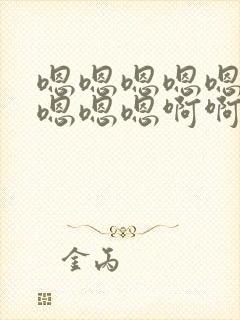 嗯嗯嗯嗯嗯
嗯嗯嗯啊啊
金丙